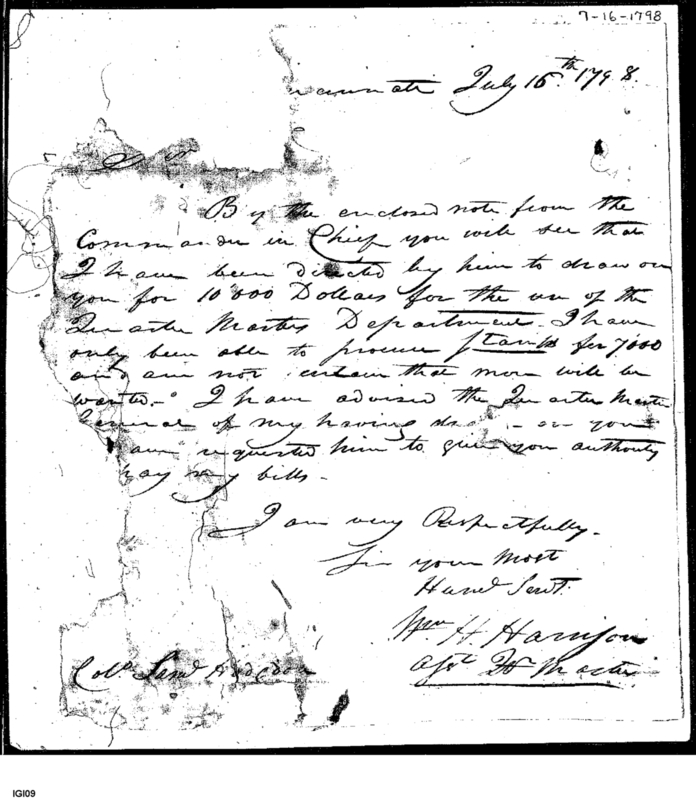 7-16-1798
July 16th. 1798.
Sir
By the enclosed note from the
Commander in Chief you will see that
I have been directed by him to draw on
you for 10'000 Dollars for the use of the
Quarter Masters Department. I have
only been able to procure Stamps for 7000
and am not certain that more will be
wanted.- I have advised the Quarter Master
General of my having on you
requested him to give you authority
pay my bills.
I am very Respectfully.
Sir your Most
Humd. Servt.
Wm H. Harrison
Asst. Qr Master
Colo. Saml Hodgdon
IGI09